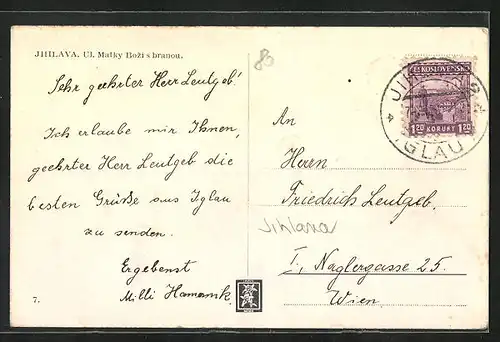 JIHLAVA. Ul. Matky Boží s branou.
Sehr geehrter Herr Leutgeb!
Ich erlaube mir Ihnen,
geehrter Herr Leutgeb die
besten Grüße aus Iglau
zu senden.
Ergebenst
Milli
7.
80
ČESKOSLOVENSKO
1.20 KORUNY 1.20
IGLAU
An
Herrn
Friedrich Leutgeb.
Jihlava
I., Naglergasse 25.
Wien.